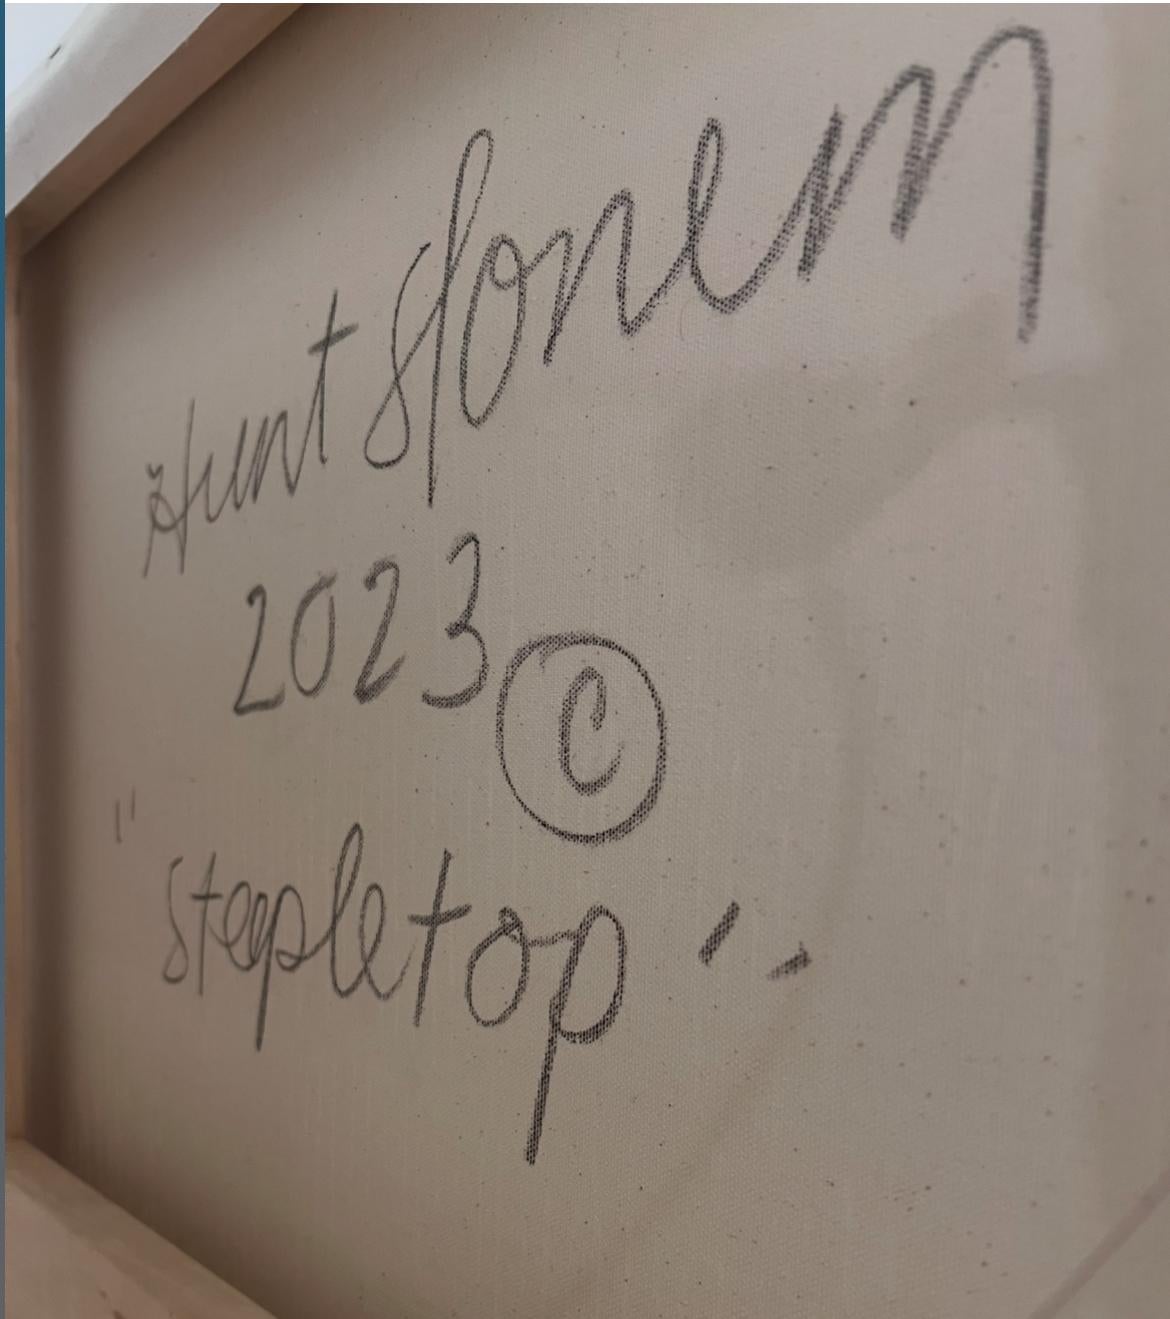 Hunt Slonem
2023 ©
"Stepletop"